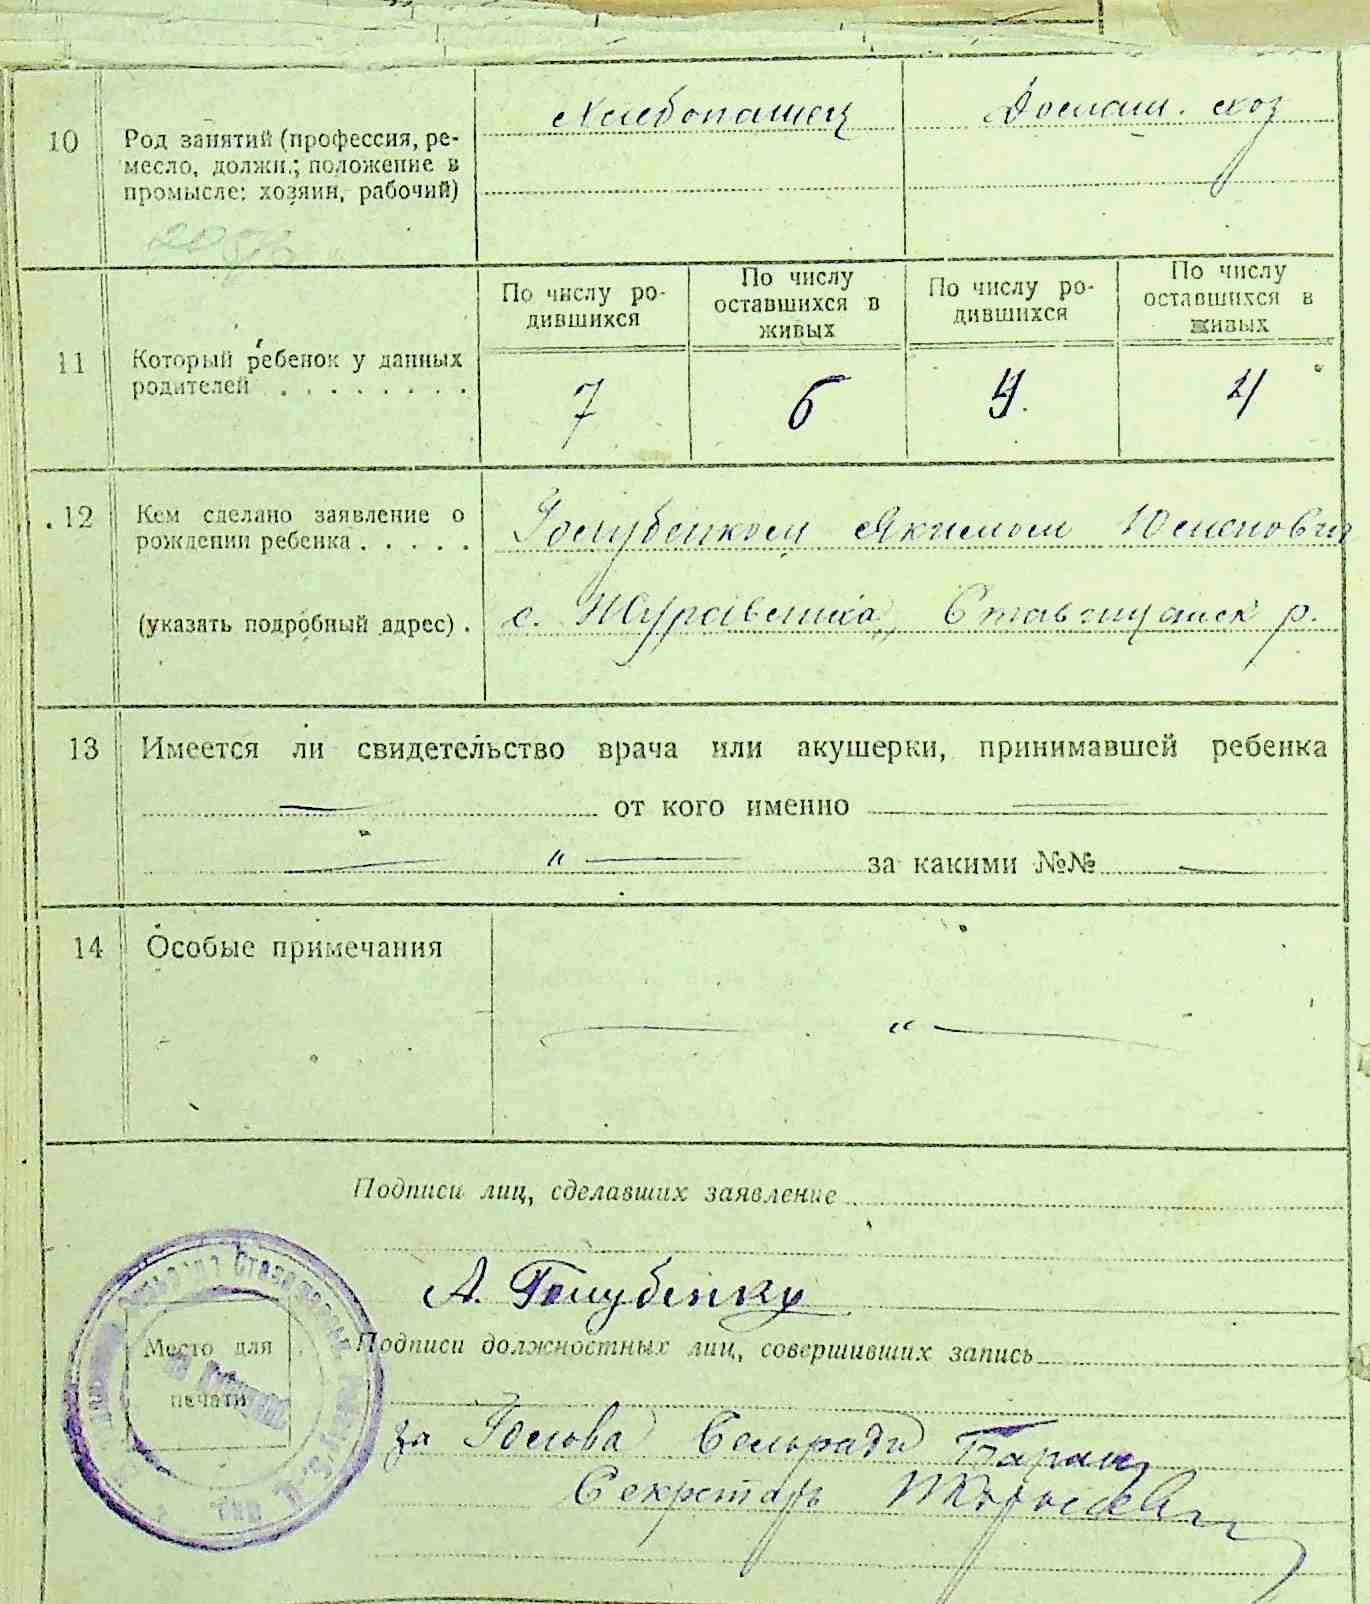 10
Род занятий (профессия, ре-
месло, должн.; положение в
промысле: хозяин, рабочий)
Хлебопашец
Домаш. хоз
11
Который ребенок у данных
родителей . . . . . . . .
По числу ро-
дившихся
По числу
оставшихся в
живых
По числу ро-
дившихся
По числу
оставшихся в
живых
7
6
4.
4
12
Кем сделано заявление о
рождении ребенка . . . . .
(указать подробный адрес) .
Голубенком Якимом
с. Журавлиха, Ставищанск р.
13
Имеется ли свидетельство врача или акушерки, принимавшей ребенка
от кого именно
— " — за какими №№ —
14
Особые примечания
— " —
Подписи лиц, сделавших заявление
А. Голубенку
Подписи должностных лиц, совершивших запись
Место для
печати
за Голова Сельради Баран
Секретарь